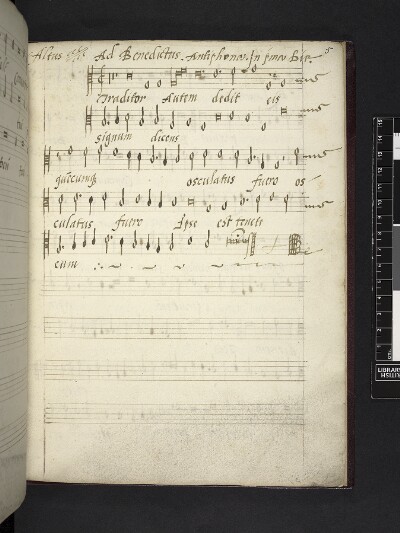 Altus Ad Benedictus Antiphona. In
Traditor Autem dedit eis
signum dicens
quecunque osculatus fuero os
culatus fuero Ipse est tenete
eum